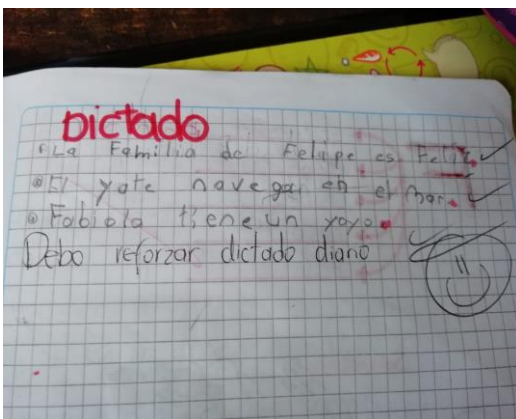 Dictado
La Familia de Felipe es Feliz.
El yate navega en el mar.
Fabiola tiene un yoyo.
Debo reforzar dictado diario